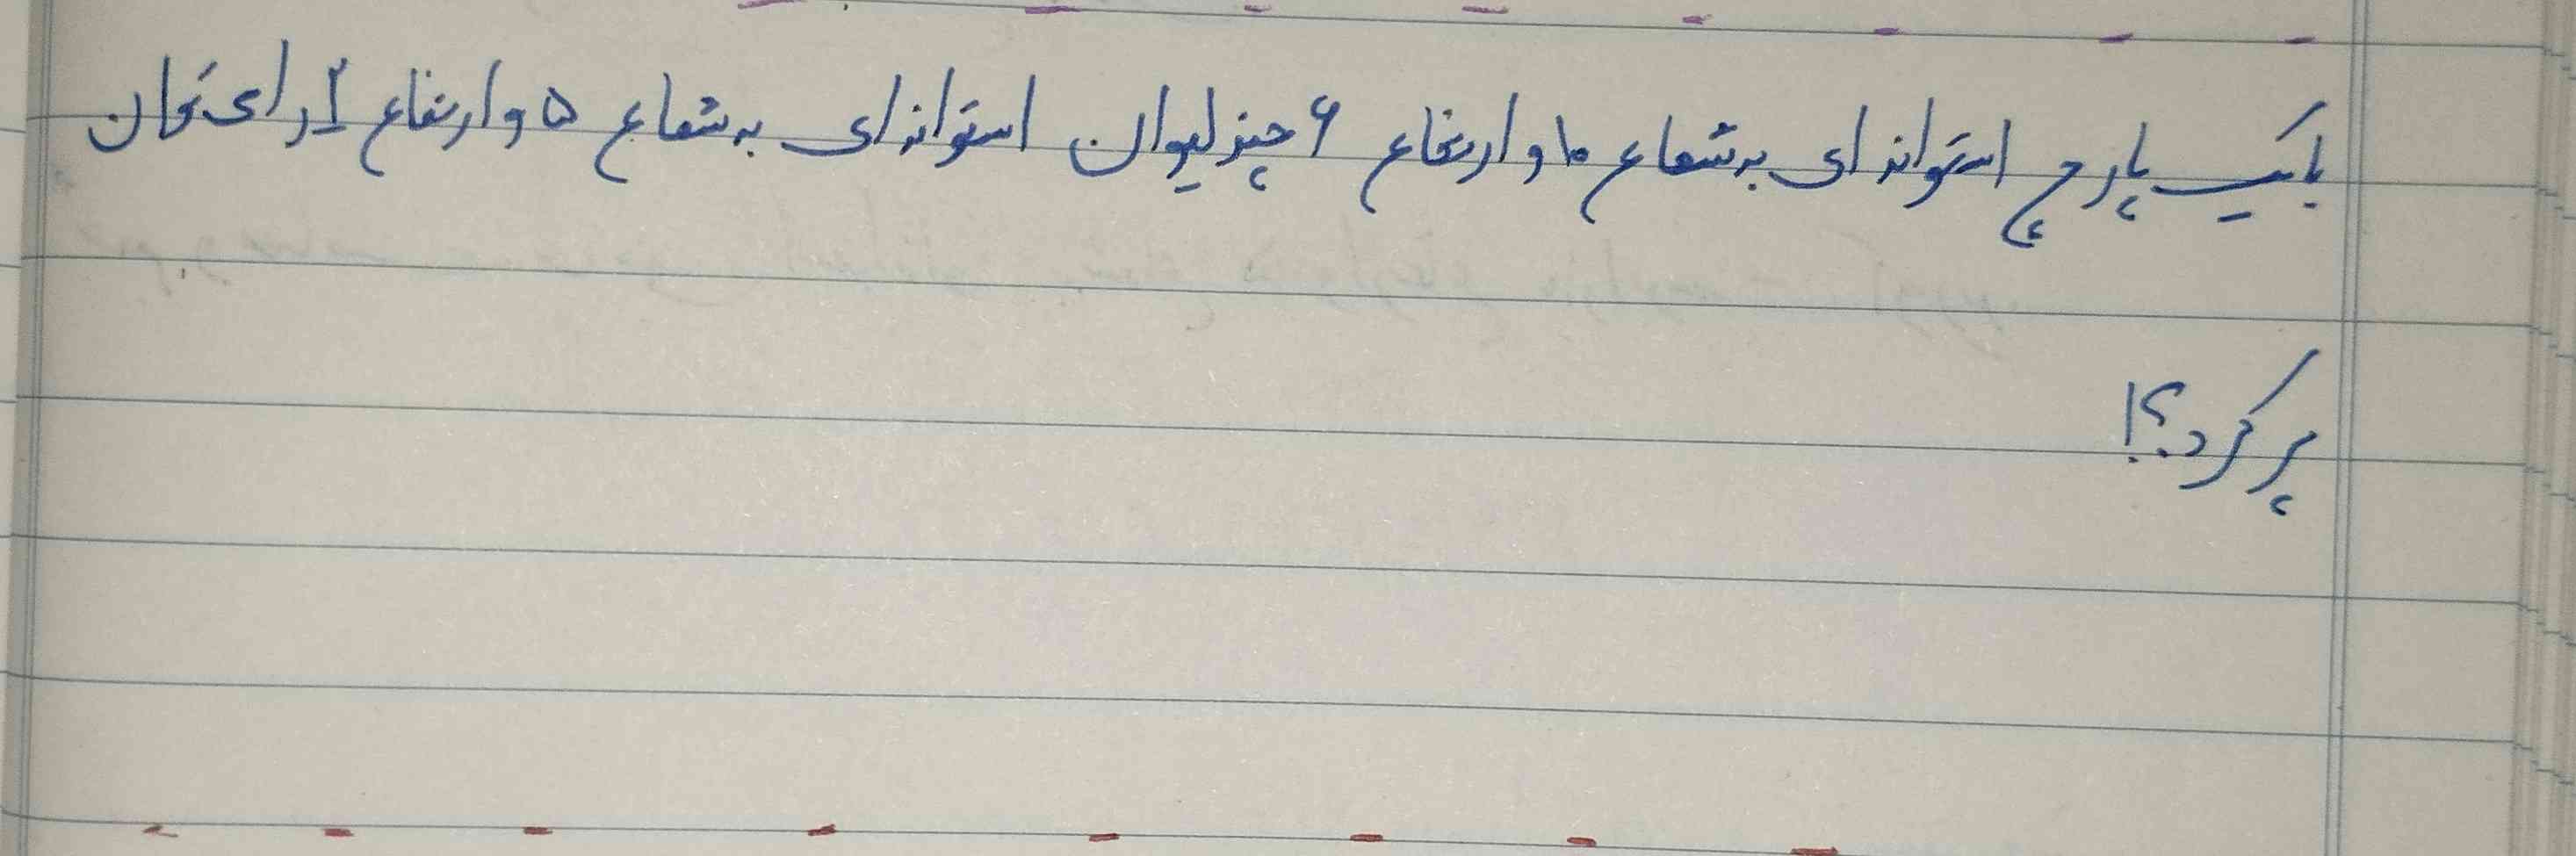 با یک پارچ استوانه ای به شعاع ۱۰ و ارتفاع ۶ چند لیوان استوانه ای به شعاع ۵ و ارتفاع ۲ را می توان
پر کرد؟!